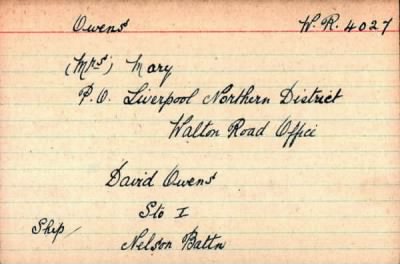 Owens W. R. 4027
(Mrs) Mary
P.O. Liverpool Northern District
Walton Road Office
David Owens
Sto I
Ship/ Nelson Battn